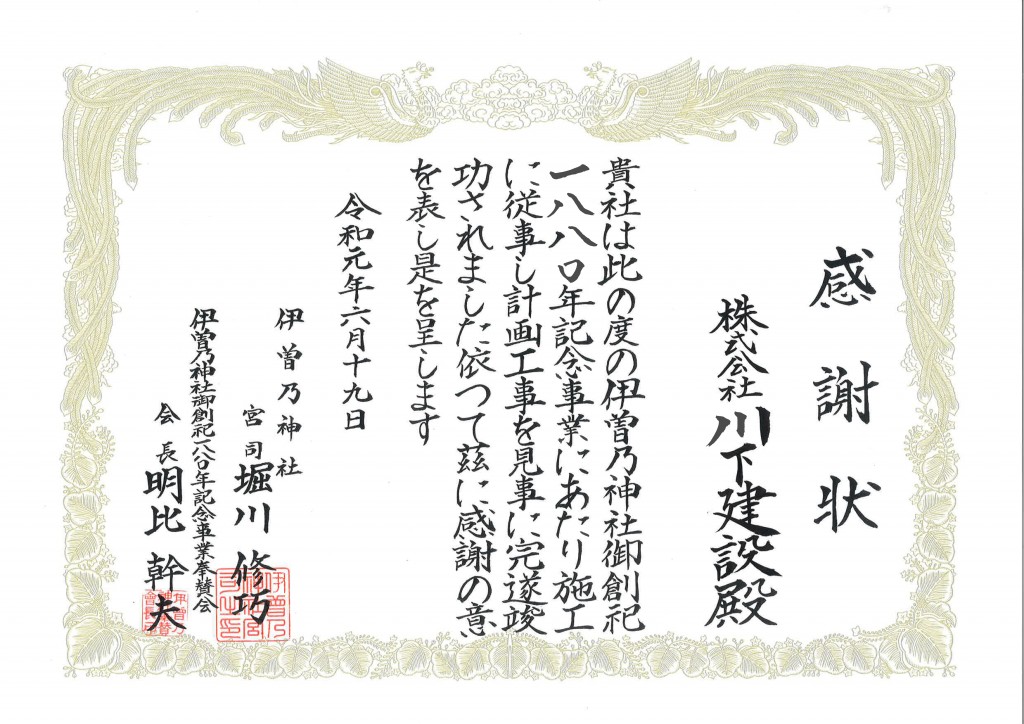 感謝状
株式会社 川下建設殿
貴社は此の度の伊曽乃神社御創祀
一八八〇年記念事業にあたり施工
に従事し計画工事を見事に完遂竣
功されました依つて茲に感謝の意
を表し是を呈します
令和元年六月十九日
伊曽乃神社
宮司 堀川 修巧
伊曽乃神社御創祀一八八〇年記念事業奉賛会
会長 明比 幹夫